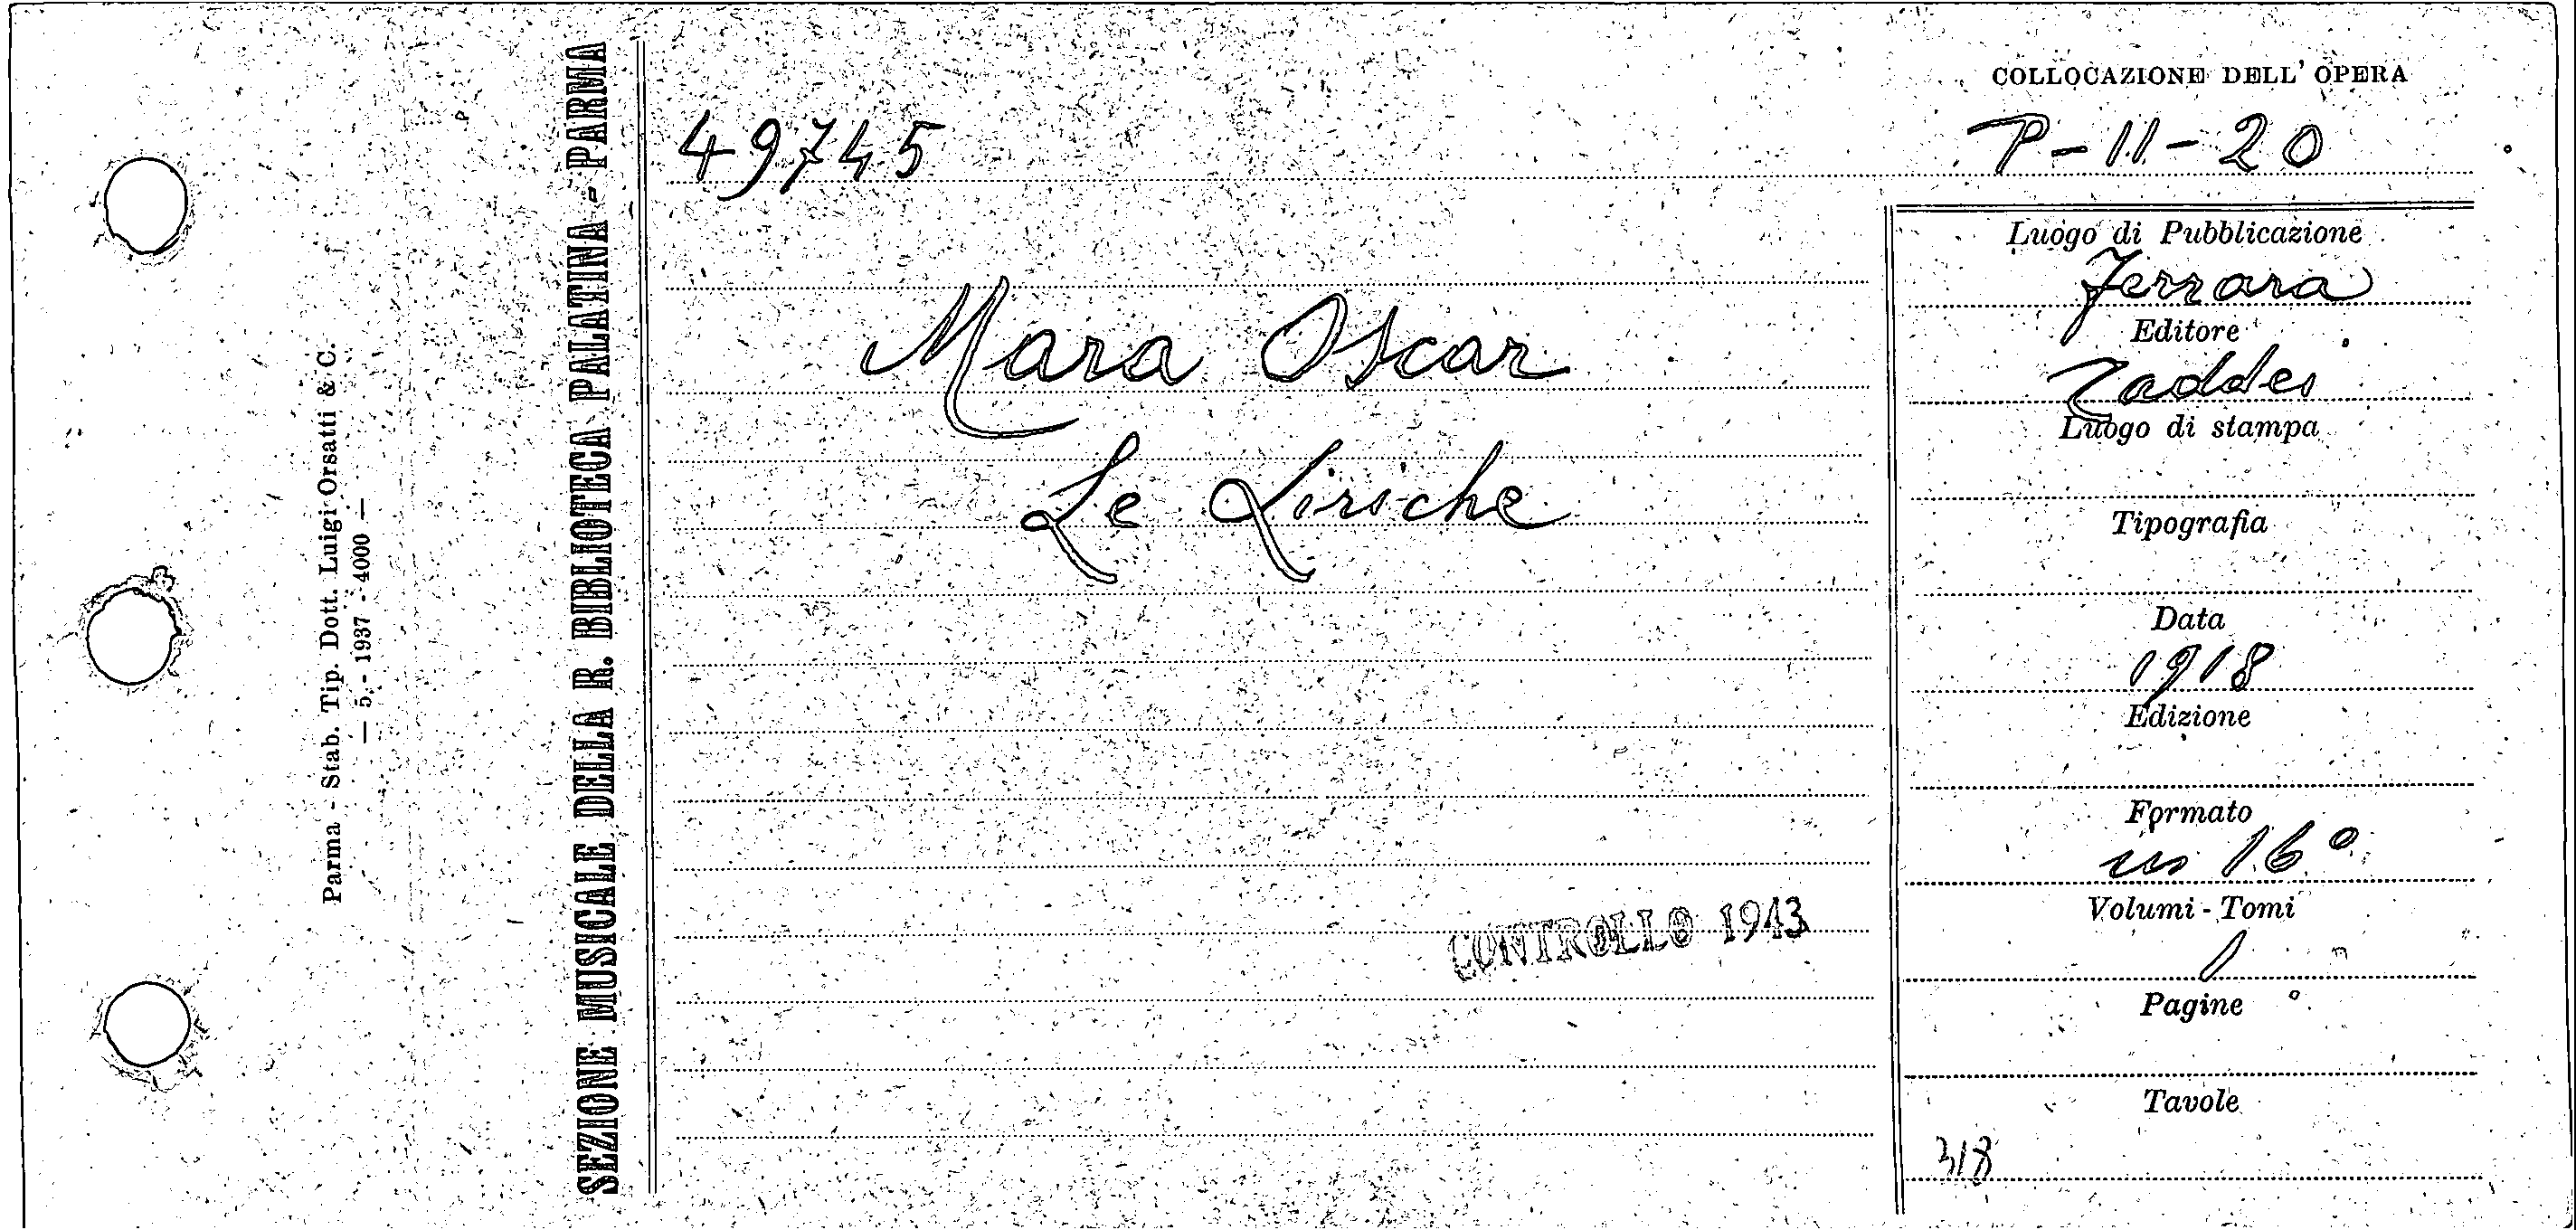 COLLOCAZIONE DELL' OPERA
49745
P-11-20
Mara Oscar
Le Liriche
Luogo di Pubblicazione
Ferrara
Editore
Taddei
Luogo di stampa
Tipografia
Data
1918
Edizione
Formato
in 16°
Volumi - Tomi
1
Pagine
Tavole
318
CONTROLLO 1943
SEZIONE MUSICALE DELLA R. BIBLIOTECA PALATINA - PARMA
Parma - Stab. Tip. Dott. Luigi Orsatti & C.
— 5 - 1937 - 4000 —